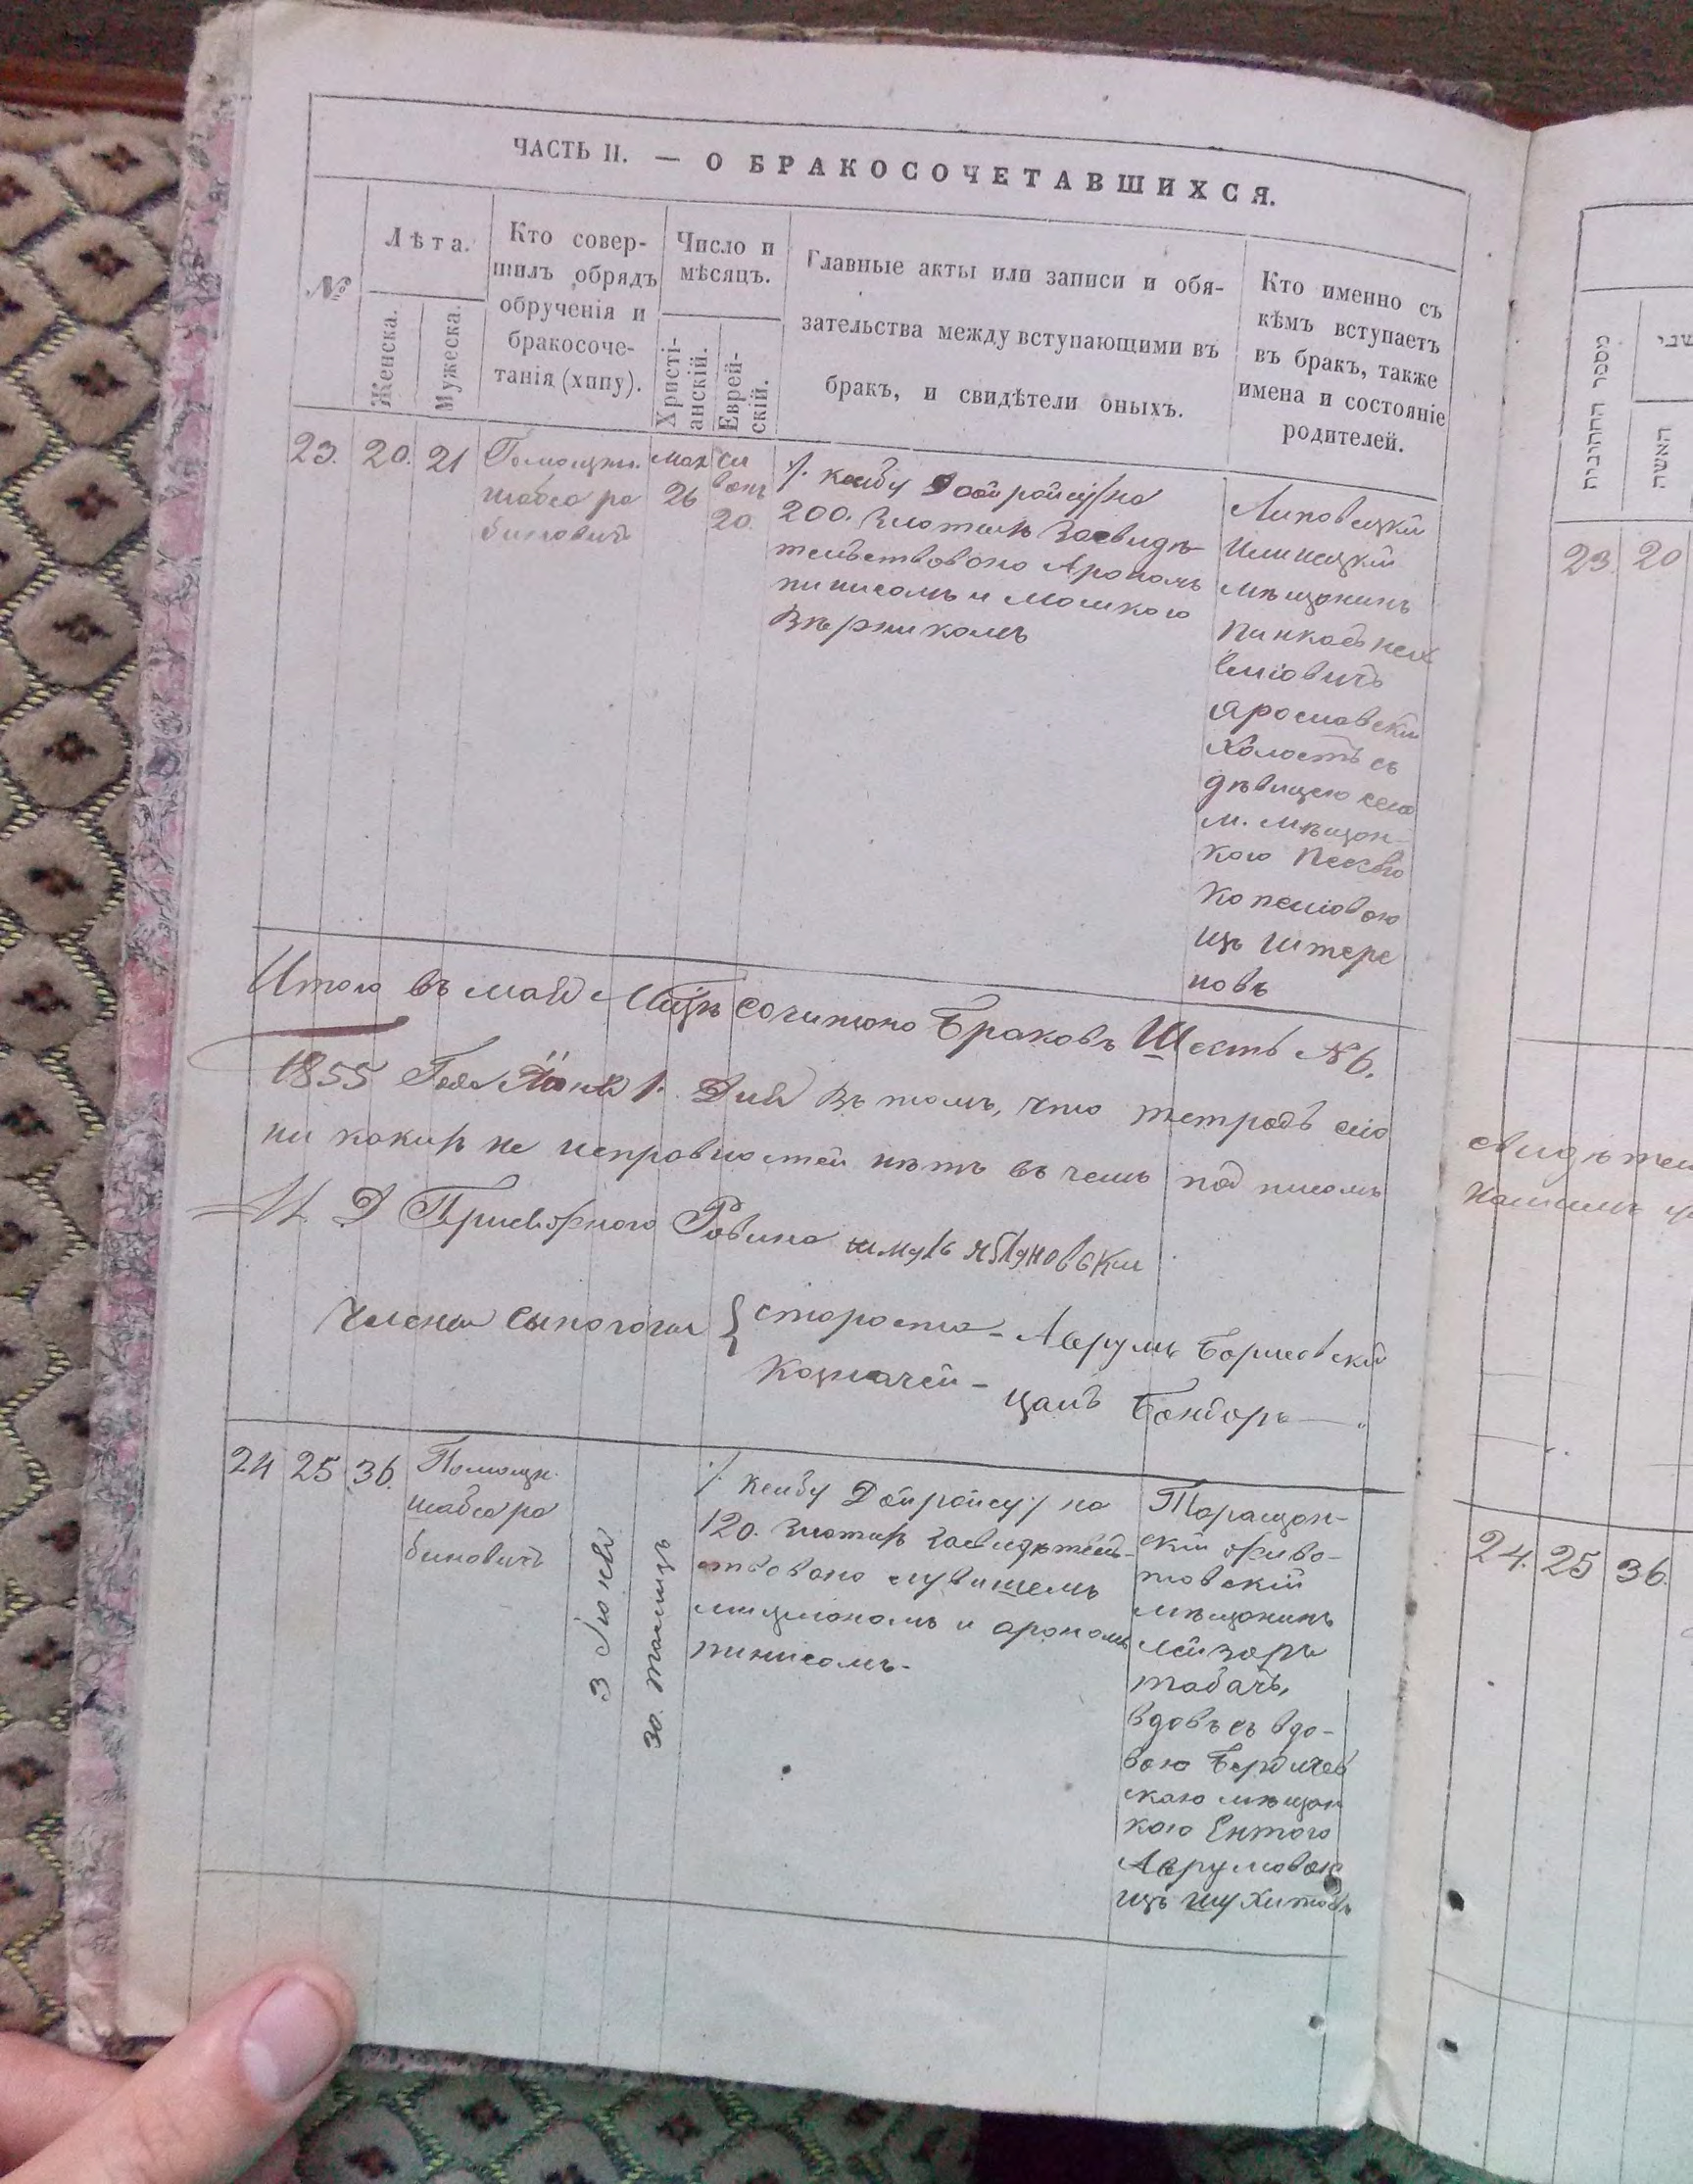 ЧАСТЬ II. — О БРАКОСОЧЕТАВШИХСЯ.
№
Лѣта.
Женска.
Мужеска.
Кто совер-
шилъ обрядъ
обрученія и
бракосоче-
танія (хппу).
Число и
мѣсяцъ.
Христі-
анскій.
Еврей-
скій.
Главные акты или записи и обя-
зательства между вступающими въ
бракъ, и свидѣтели оныхъ.
Кто именно съ
кѣмъ вступаетъ
въ бракъ, также
имена и состояніе
родителей.
23. 20. 21
Помощни.
шабса ра
биновичъ
мая
26
си
ванъ
20.
200. Златыхъ Засвидѣ-
тельствовано Арономъ
пинисомъ и Мошкою
Вѣрникомъ
Липовецкій
Илинецкій
мѣщанинъ
Ярославскій
Холостъ съ
дѣвицею сего
м. мѣщан-
кою
изъ Штере
новъ
Итого въ маѣ Мцѣ сочитано Браковъ Шесть №6.
1855 Года Іюня 1. Дня Въ томъ, что тетрадь сія
ни какихъ не исправностей нѣтъ въ чемъ под писомъ
И. Д Присяжного Равина шмуль яблуновскіи
Члены сыногоги { староста - Аврумъ Боршовскій
Козначей - цаль Бондарь
24 25 36.
Помощн.
шабса ра
биновичъ
3 Іюня
30.
120. Златыхъ Засвидѣтель-
арономъ
пинисомъ-
Таращан-
скій
мѣщанинъ
Лейзоръ
табачъ,
вдовъ съ вдо-
вою Бердичев
скаю мѣщан
кою Ентою
Аврумовою
изъ
מספר החתונות
האשה
23. 20
24. 25 36.